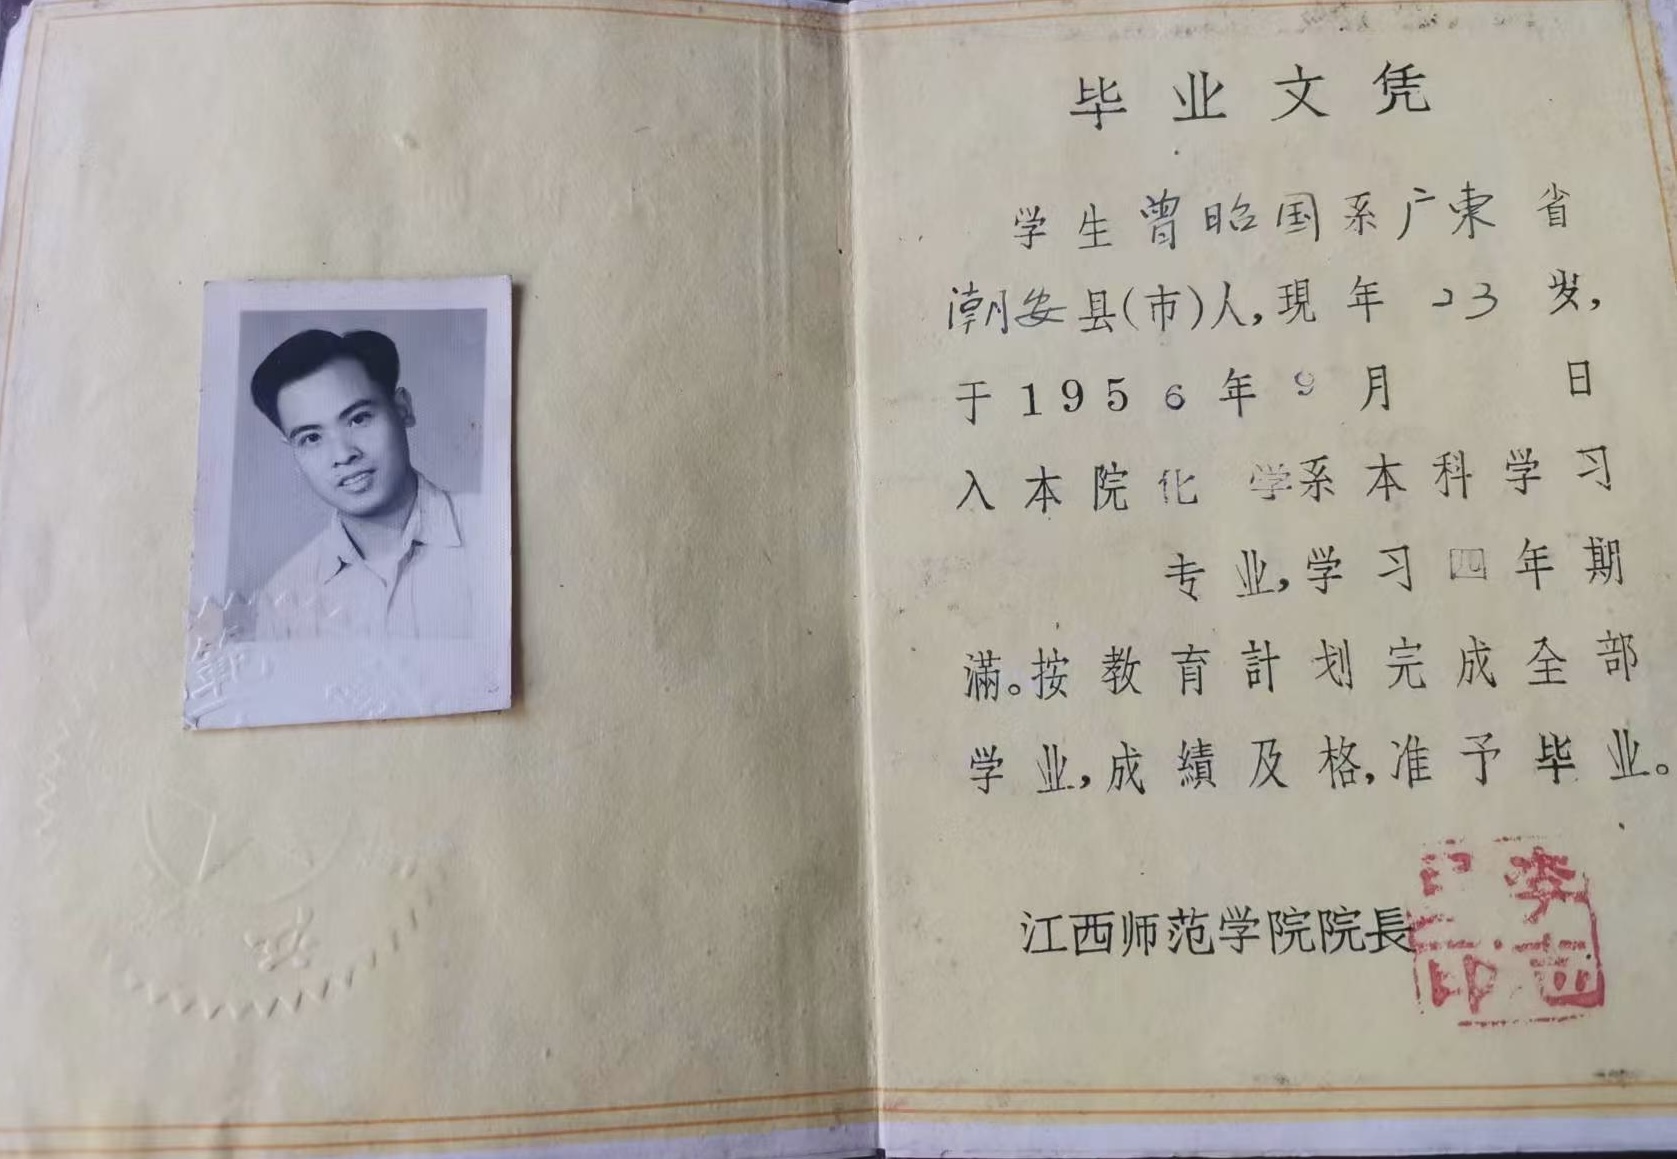 毕业文凭
学生曾昭国系广东省
潮安县(市)人,現年23岁,
于1956年9月 日
入本院化学系本科学习
专业,学习四年期
滿。按教育計划完成全部
学业,成績及格,准予毕业。
江西师范学院院長